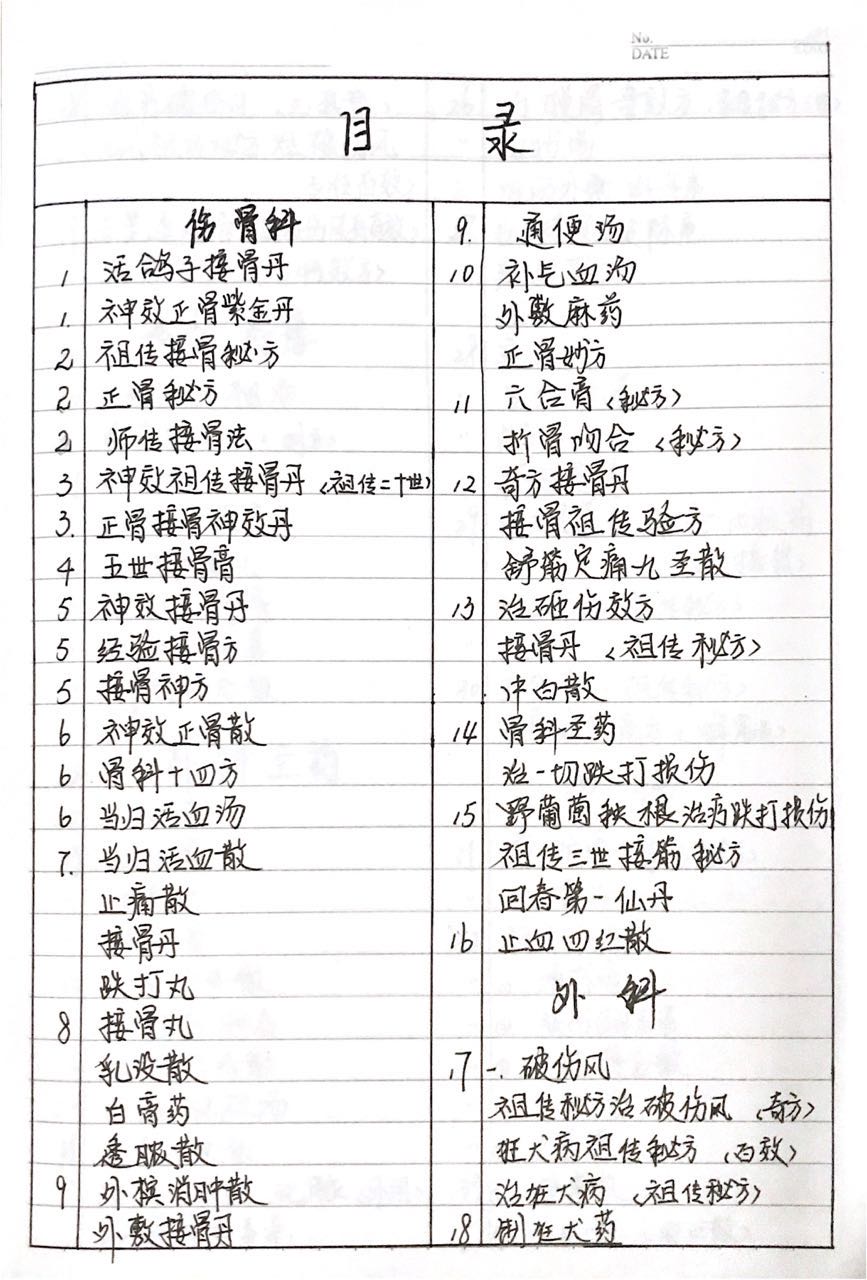 No.
DATE
目 录
伤骨科
1 活鸽子接骨丹
1. 神效正骨紫金丹
2 祖传接骨秘方
2 正骨秘方
2 师传接骨法
3 神效祖传接骨丹〈祖传二十世〉
3. 正骨接骨神效丹
4 五世接骨膏
5 神效接骨丹
5 经验接骨方
5 接骨神方
6 神效正骨散
6 骨科十四方
6 当归活血汤
7. 当归活血散
止痛散
接骨丹
跌打丸
8 接骨丸
乳没散
白膏药
透服散
9 外摈消肿散
外敷接骨丹
9. 通便汤
10 补气血汤
外敷麻药
正骨妙方
11 六合膏〈秘方〉
折骨吻合〈秘方〉
12 奇方接骨丹
接骨祖传验方
舒筋定痛九圣散
13 治砸伤效方
接骨丹〈祖传秘方〉
冲白散
14 骨科圣药
治一切跌打损伤
15 野葡萄秧根治疗跌打损伤
祖传三世接筋秘方
回春第一仙丹
16 止血四红散
外 科
17 一. 破伤风
祖传秘方治破伤风〈奇方〉
狂犬病祖传秘方〈百效〉
治狂犬病〈祖传秘方〉
18 制狂犬药